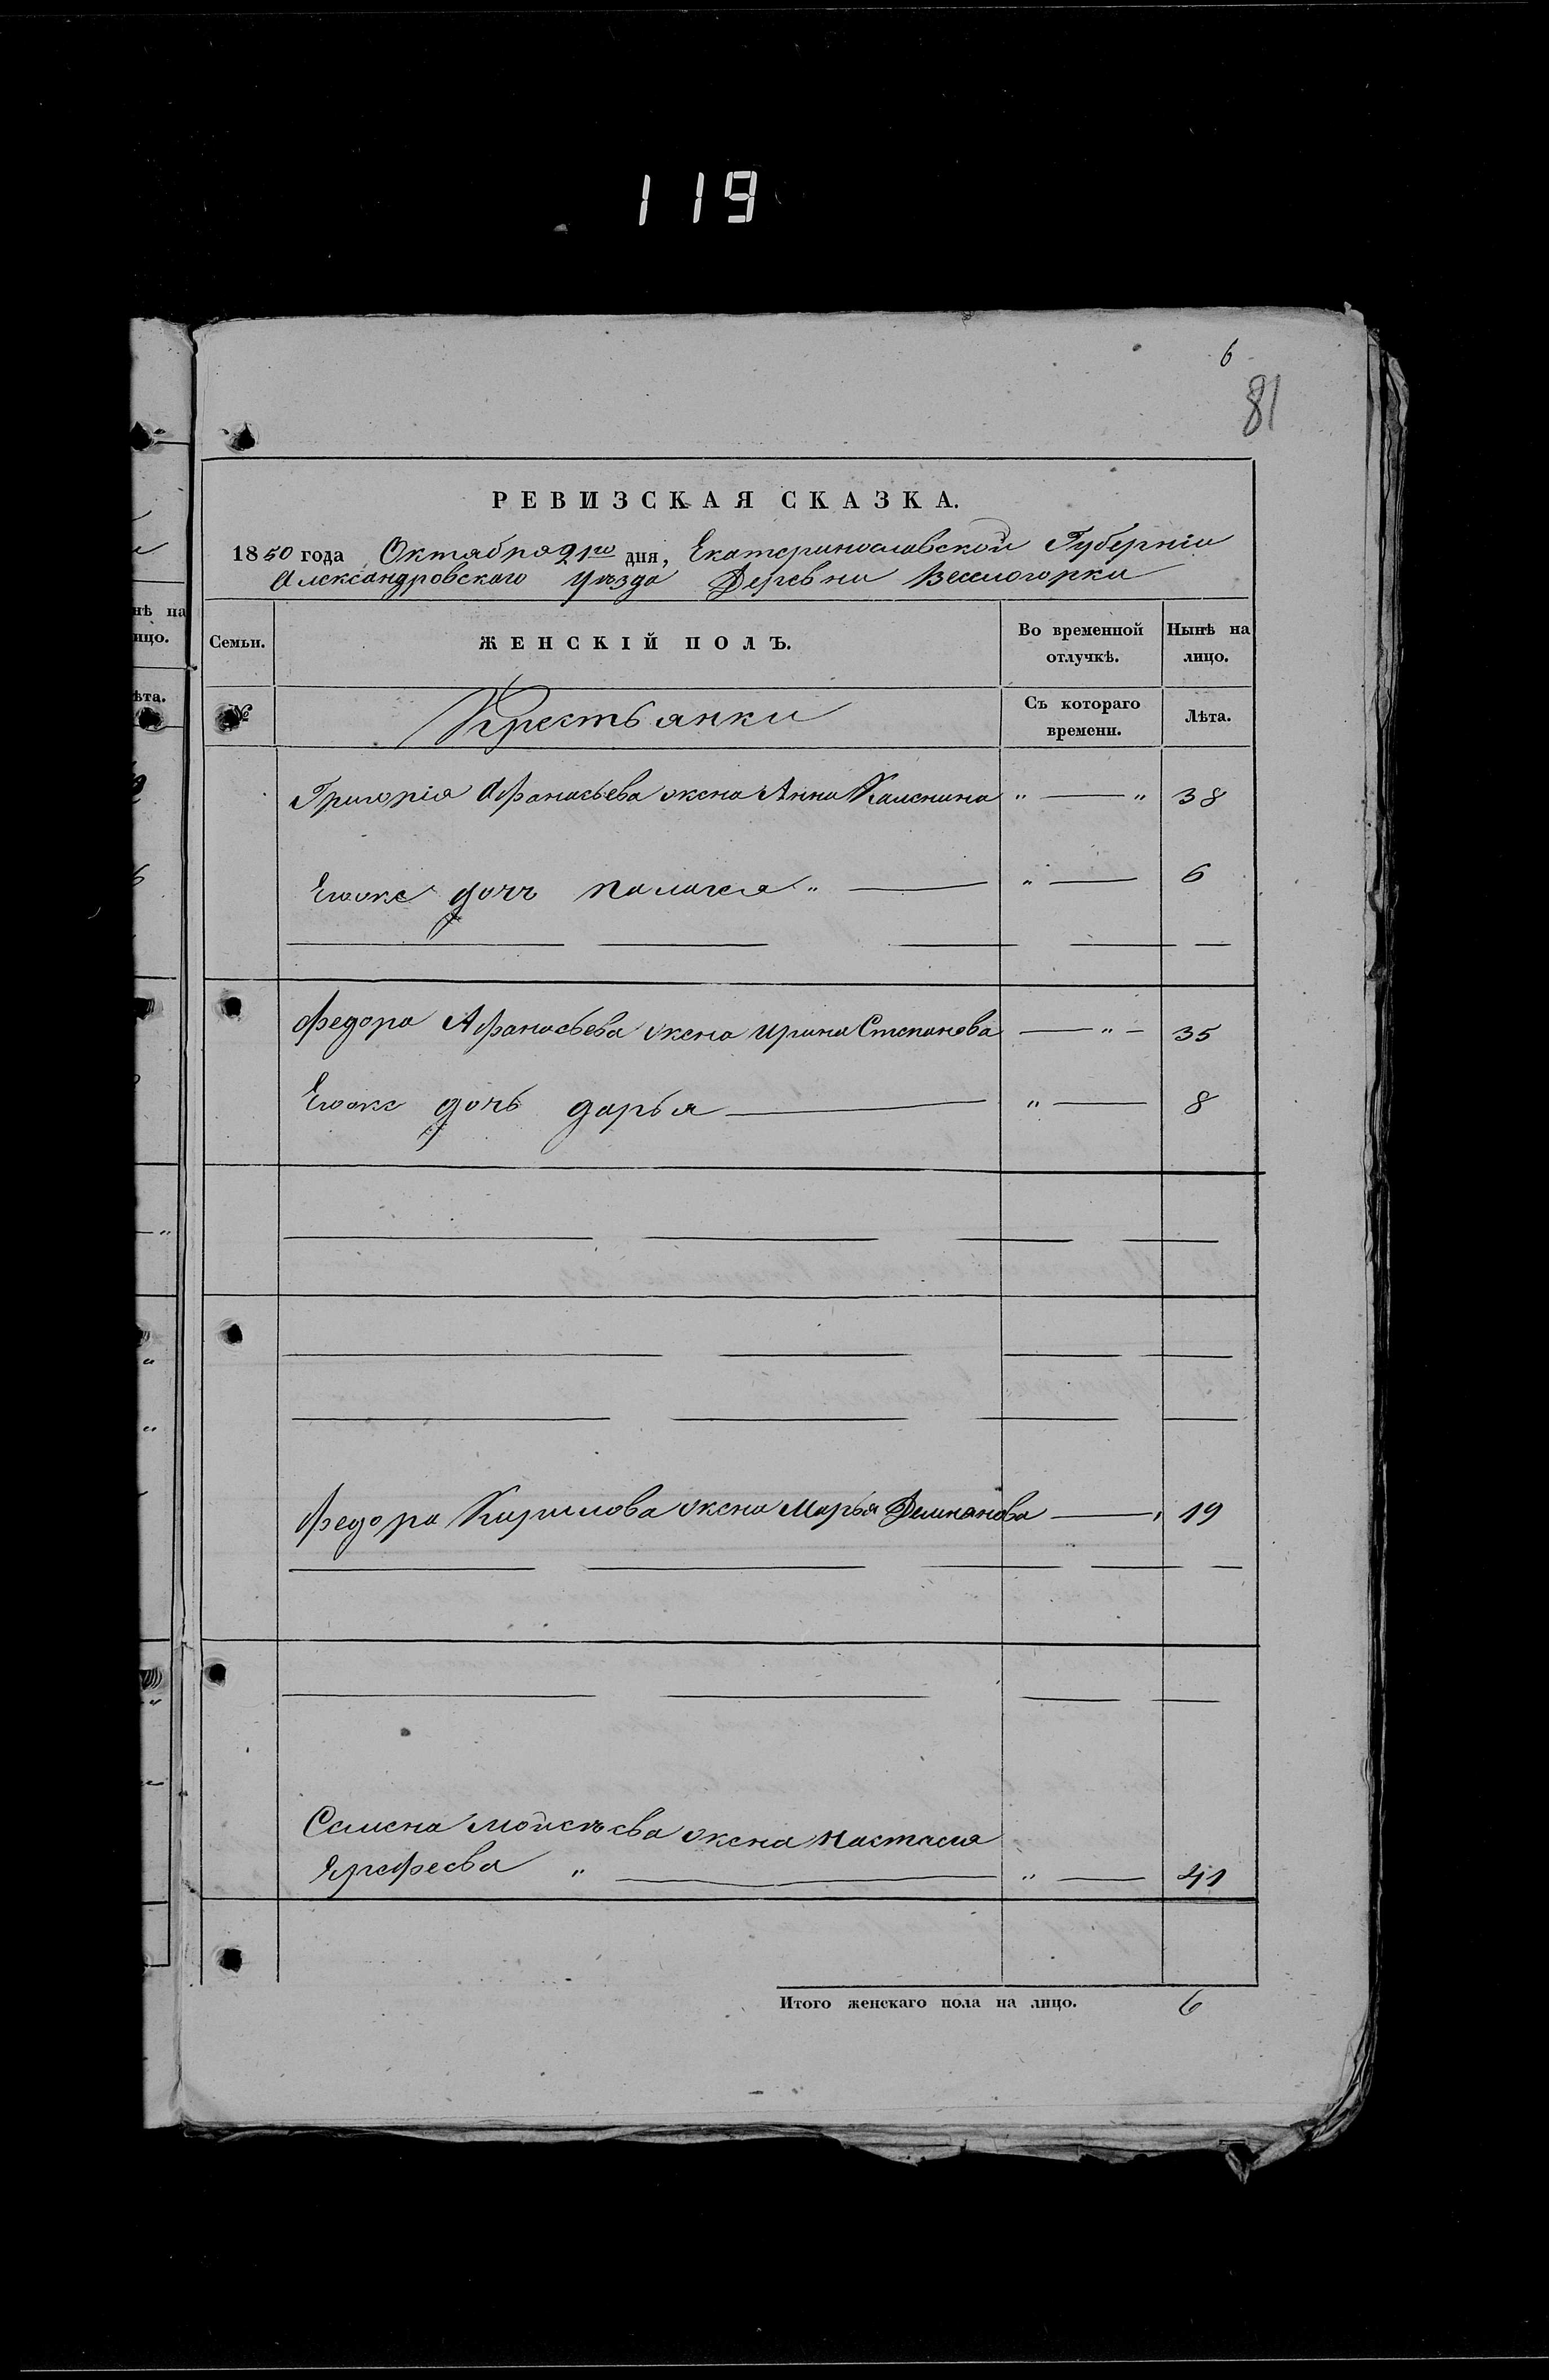 119
6
81
РЕВИЗСКАЯ СКАЗКА.
1850 года Октября 21го дня, Екатеринославской Губерніи
Александровского Уѣзда Деревни Веселогорки
нѣ на
ицо.
ѣта.
Семьи.
ЖЕНСКІЙ ПОЛЪ.
Во временной отлучкѣ.
Нынѣ на лицо.
№
Крестьянки
Съ котораго времени.
Лѣта.
Григорія Афанасьева жена Анна " — " 38
Егоже дочъ Палагея " — " — 6
Федора Афанасьева жена Ирина Степанова — " — 35
Егоже дочь дарья — " — 8
Федора Кирилова жена Марья Демьянова — " 19
Семена Мойсѣева жена Настасия
" — " — 41
Итого женскаго пола на лицо. 6